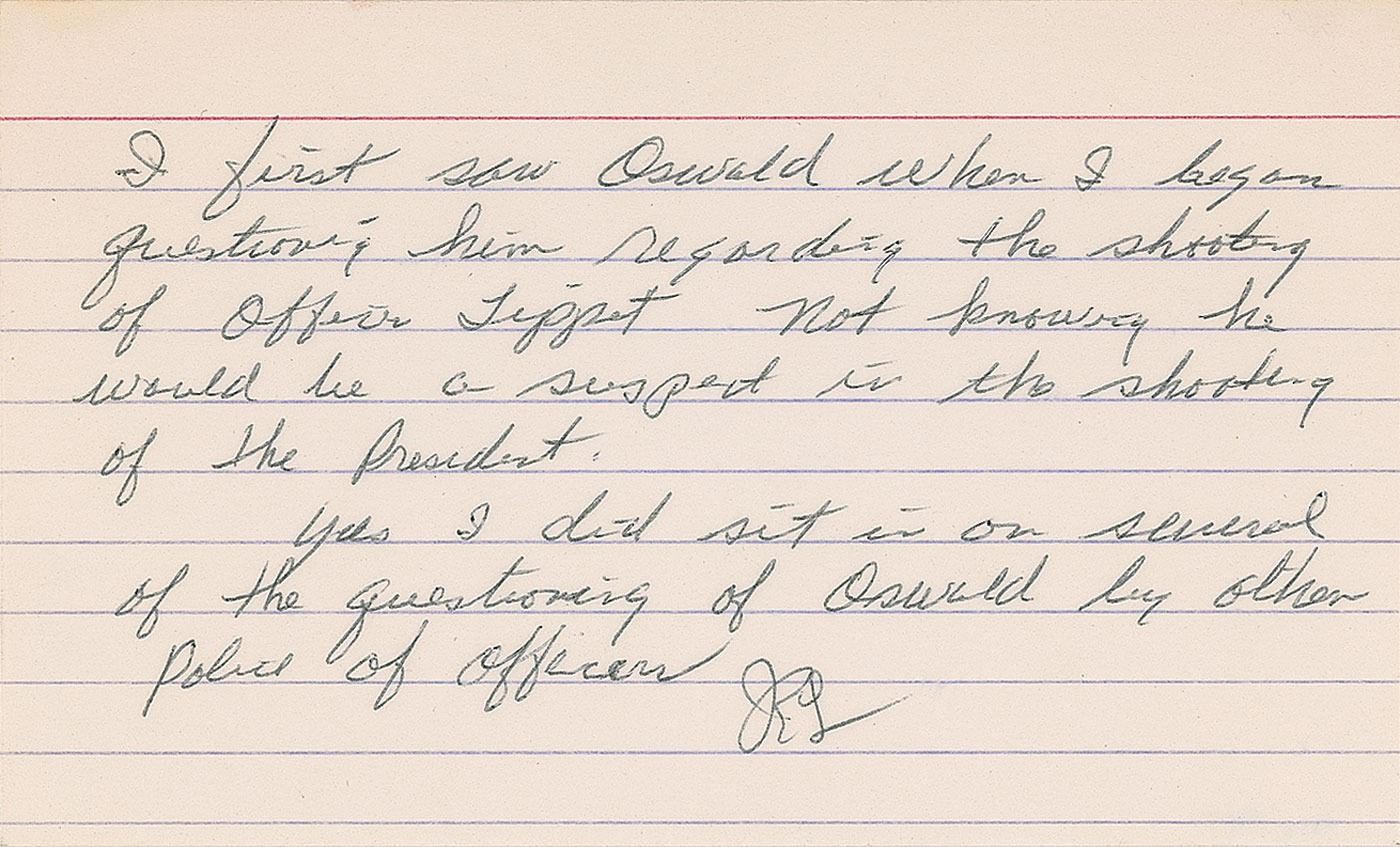 I first saw Oswald when I began
questioning him regarding the shooting
of Officer Tippet Not knowing he
would be a suspect in the shooting
of the President.
Yes I did sit in on several
of the questioning of Oswald by other
Police of Officers
JRL